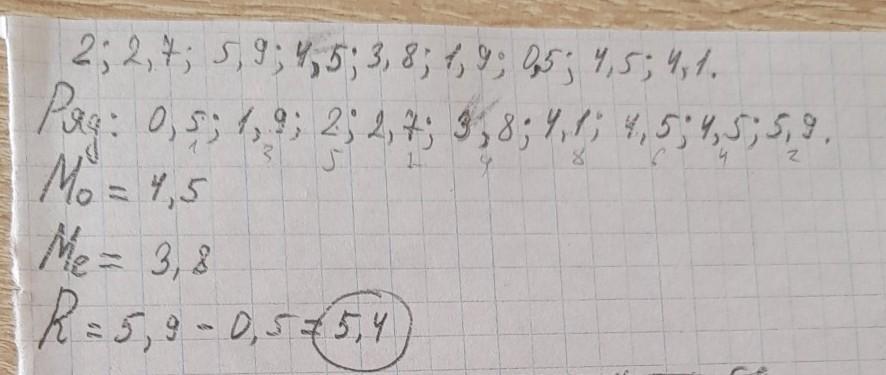 2; 2,7; 5,9; 4,5; 3,8; 1,9; 0,5; 4,5; 4,1.
Ряд: 0,5; 1,9; 2; 2,7; 3,8; 4,1; 4,5; 4,5; 5,9.
Mo = 4,5
Me = 3,8
R = 5,9 - 0,5 = 5,4